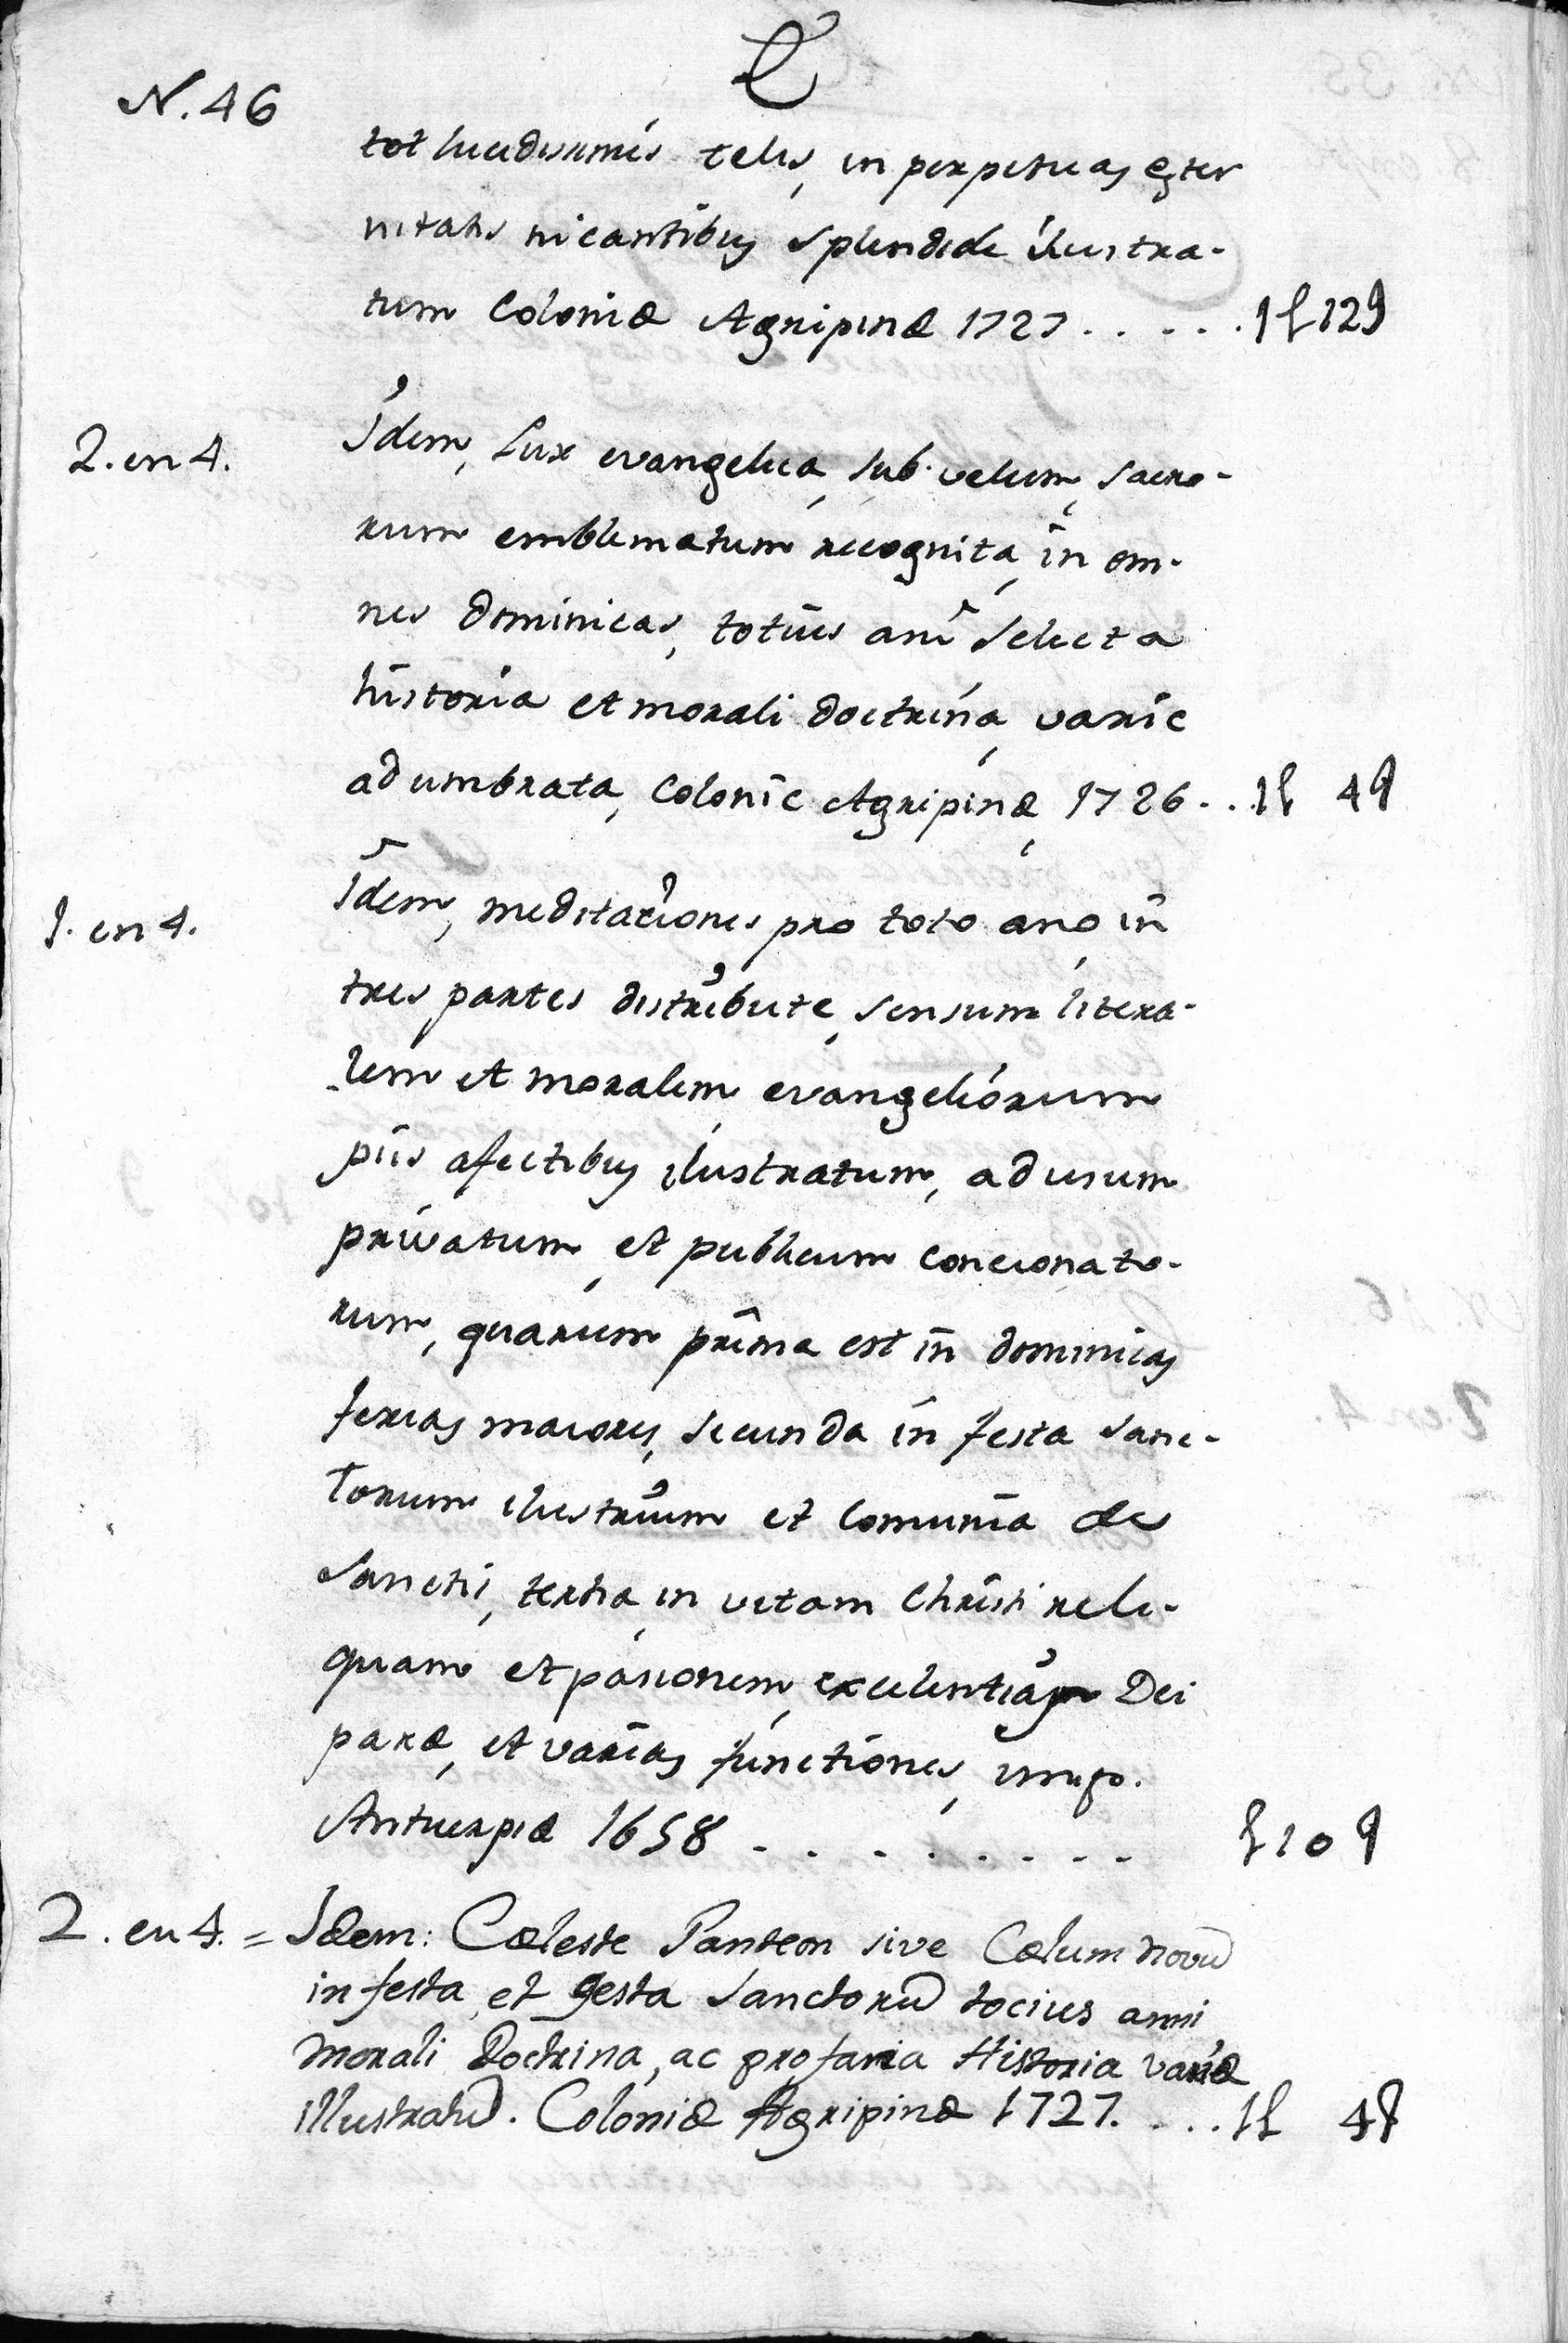 E
N. 46
tot lucidisimis celis, in perpetuas eter
nitatis micantibus splendide ilustra-
tum Coloniæ Agripinæ 1727 . . . . . 1l 129
2. en 4. Idem, Lux evangelica, sub velum, sacro-
rum emblematum recognita, in om-
nes dominicas, totius ani selecta
historia et morali doctrina, varie
adumbrata, Colonie Agripinæ, 1726 . . 1l 49
1. en 4. Idem, meditationes pro toto ano in
tres partes distribute, sensum litera-
lem et moralem, evangeliorum
piis afectibus ilustratum, ad usum
privatum, et publicum concionato-
rum, quarum prima est in dominicas
ferias maiores, secunda in festa sanc-
torum ilustrium et comunia de
Sanctis, tertia, in vitam Christi reli-
quam et pasionem, excelentiam Dei
paræ, et varias functiones,
Antuerpiæ 1658 - . . . . . . . l 10 9
2. en 4. = Idem: Cæleste Panteon sive Cælum novū
in festa, et gesta Sanctorū tocius anni
morali Doctrina, ac profana Historia variæ
illustratū. Coloniæ Agripinæ 1727. . . . 1l 49